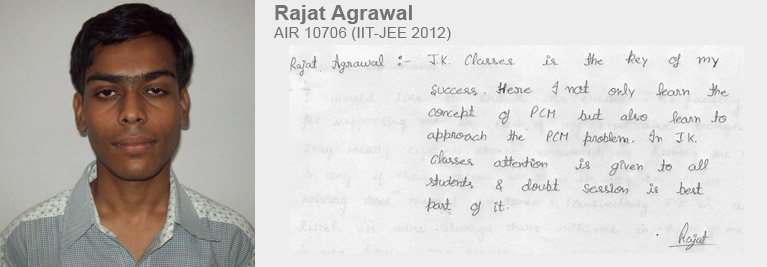 Rajat Agrawal
AIR 10706 (IIT-JEE 2012)
Rajat Agrawal :- J.K. Classes is the key of my
success. Here I not only learn the
concept of PCM but also learn to
approach the PCM problem. In J.K.
Classes attention is given to all
students & doubt session is best
part of it.
Rajat